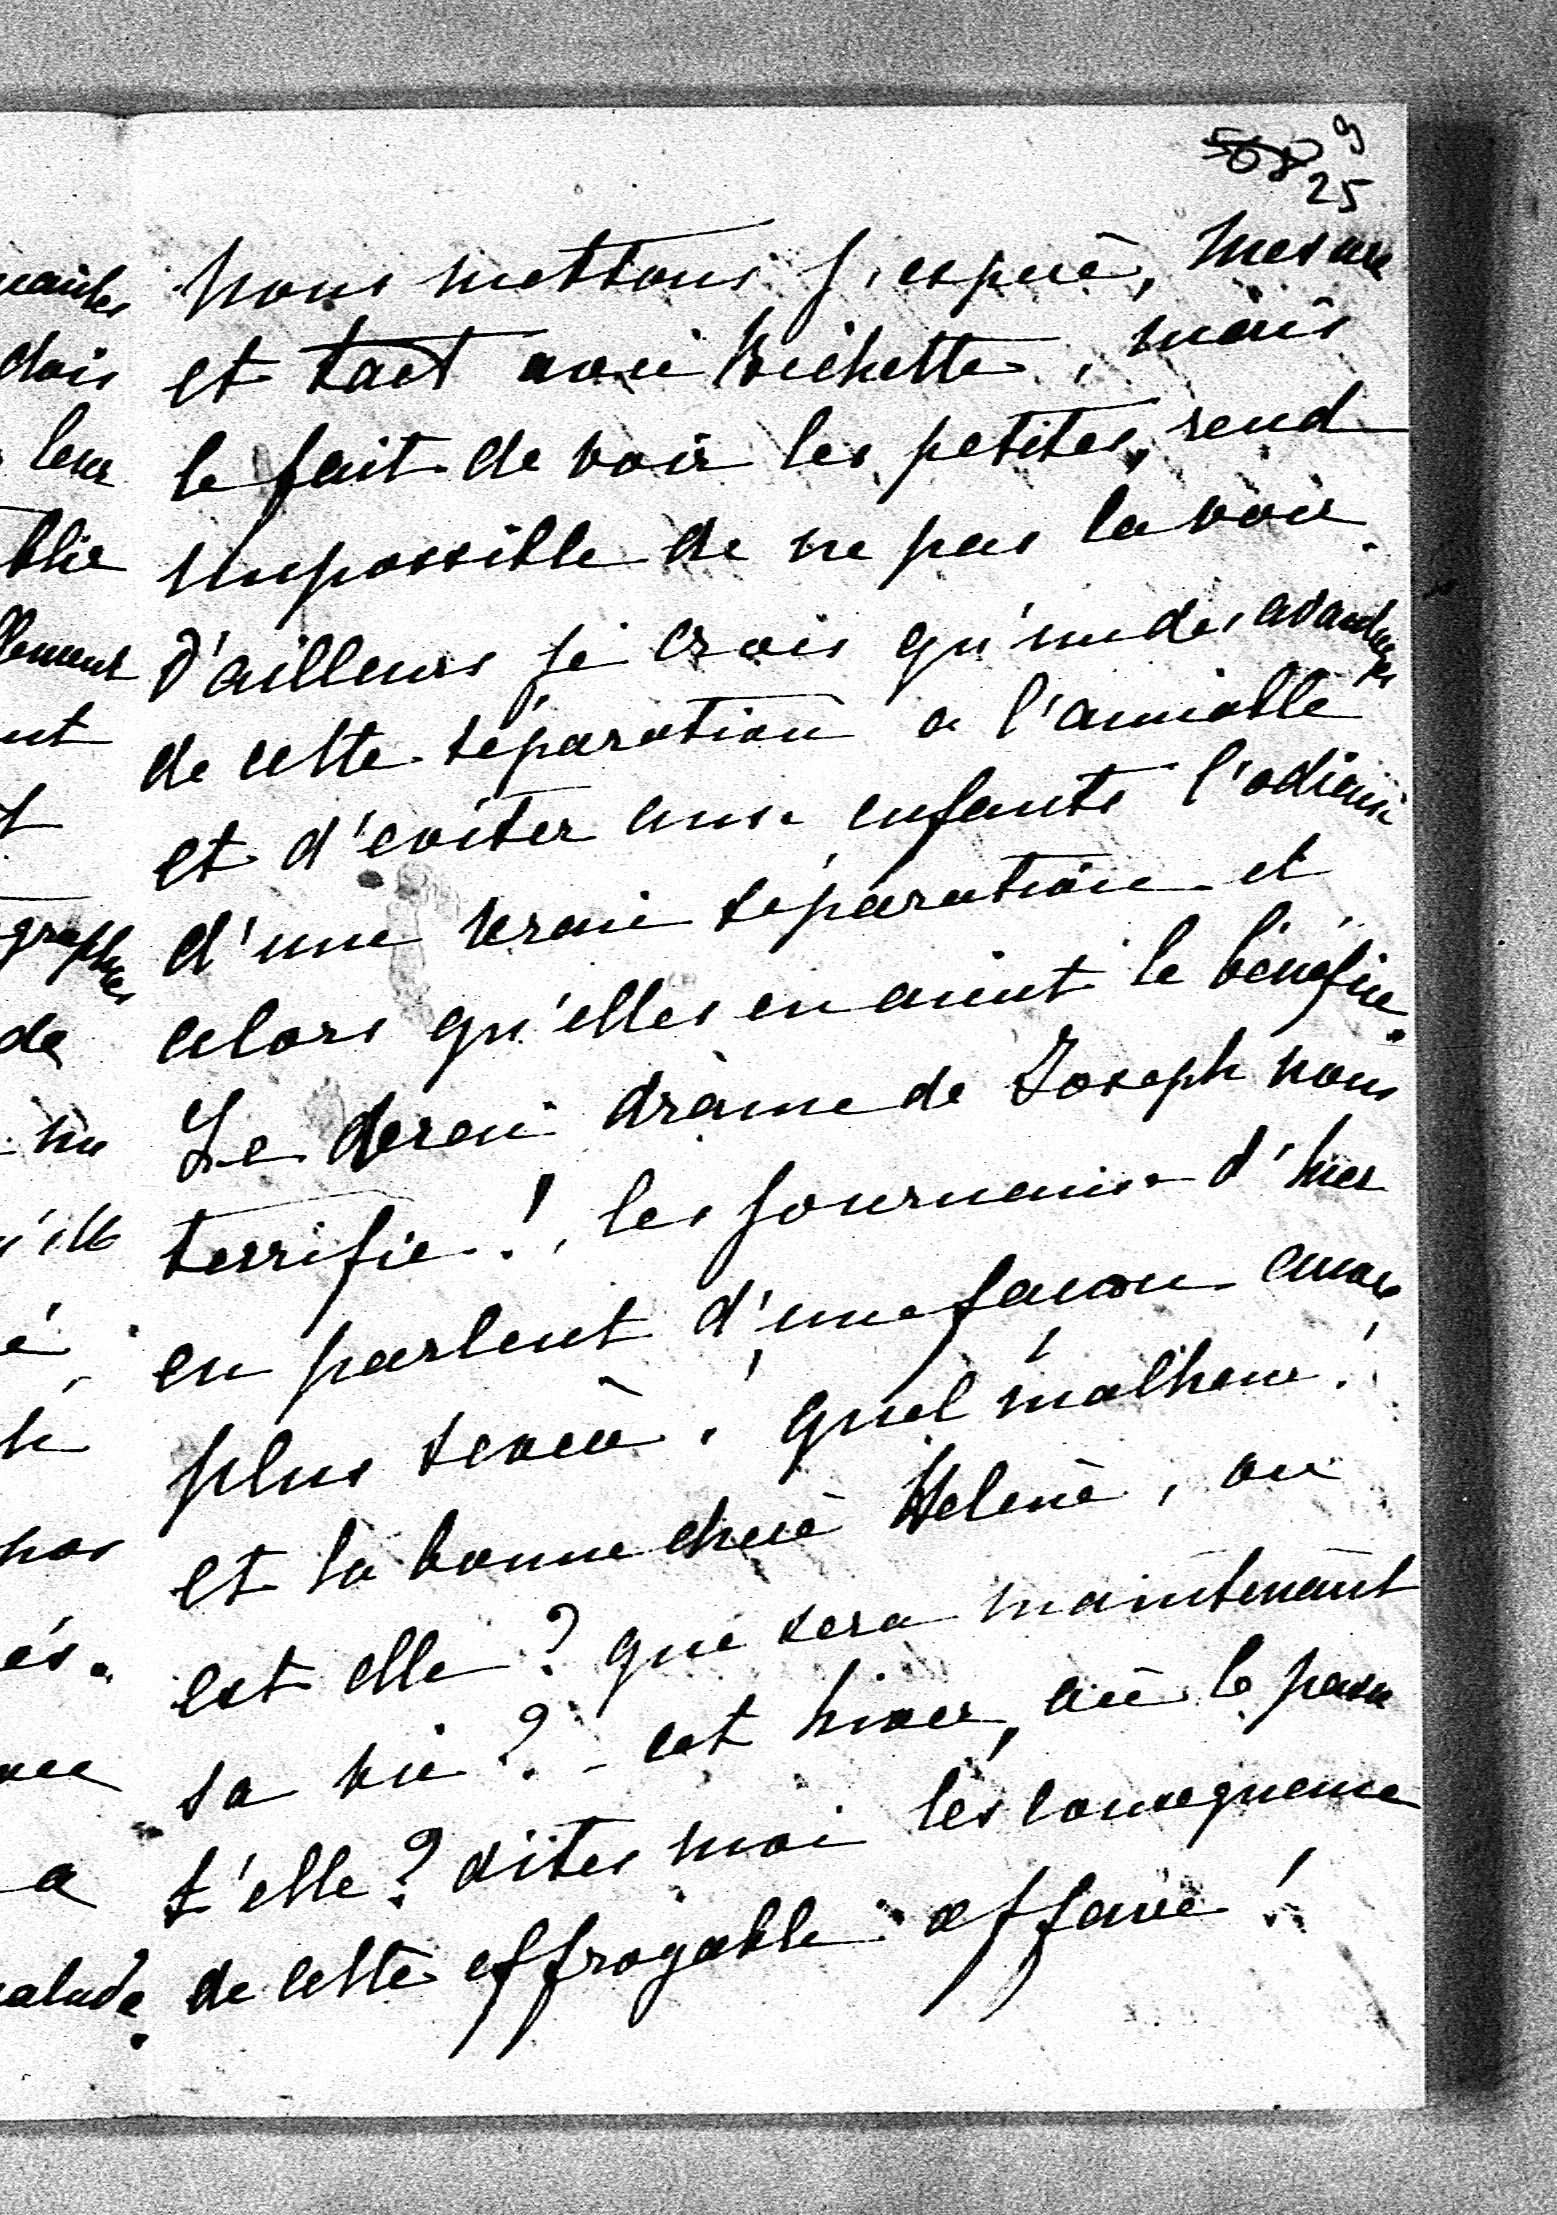 9
508
25
nous mettons j'espère, mesure
et tact avec Bichette, mais
le fait de voir les petites, rend
impossible de ne pas la voir.
D'ailleurs je crois qu'un des avantages
de cette séparation a l'amiable
est d'eviter aux enfants l'odieux
d'une vraie séparation et
alors qu'elles en aient le bénéfice.
Le dernier drame de Joseph nous
terrifie !, les journaux d'hier
en parlent d'une facon encore
plus sevère ! quel malheur !
et la bonne chere Helene, ou
est elle ? que sera maintenant
sa vie ? - cet hiver, où le passe
t'elle ? dites moi les consequence
de cette effroyable affaire !
dois
leur
nt
t
graphes
de
é,
pas
és.
a